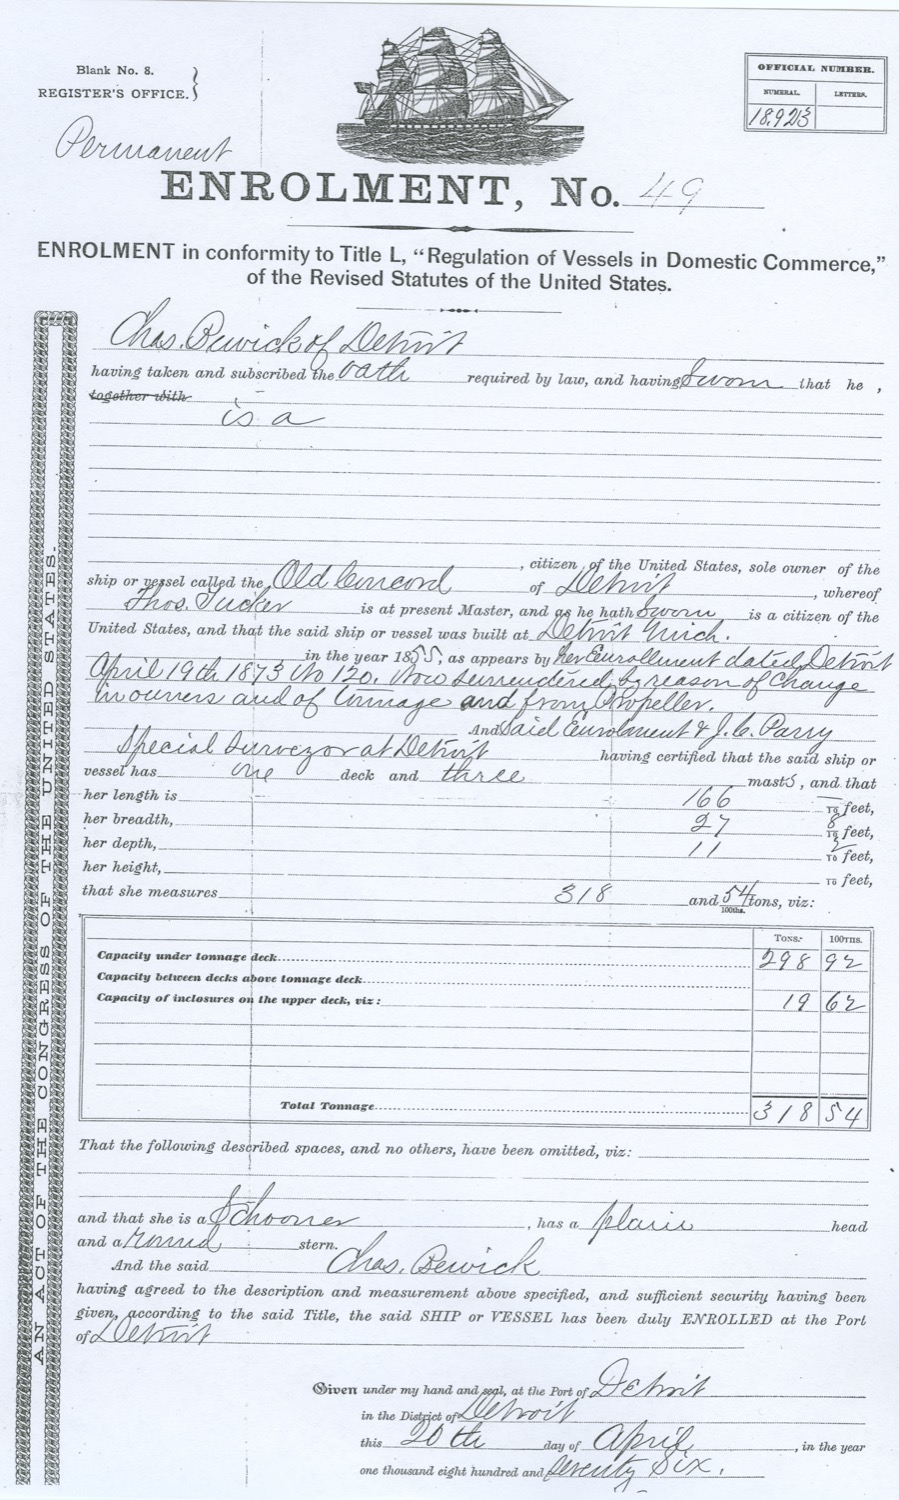 Blank No. 8.
REGISTER'S OFFICE.
OFFICIAL NUMBER.
NUMERAL. LETTERS.
18,923
Permanent
ENROLMENT, No. 49
ENROLMENT in conformity to Title L, “Regulation of Vessels in Domestic Commerce,”
of the Revised Statutes of the United States.
AN ACT OF THE CONGRESS OF THE UNITED STATES.
Chas. Bewick of Detroit
having taken and subscribed the oath required by law, and having Sworn that he,
together with
is a
, citizen of the United States, sole owner of the
ship or vessel called the Old Concord of Detroit, whereof
Thos. Tucker is at present Master, and as he hath Sworn is a citizen of the
United States, and that the said ship or vessel was built at Detroit Mich.
in the year 1855, as appears by her Enrollment dated Detroit
April 19th 1873 No 120. Now surrendered by reason of Change
in owners and of tonnage and from Propeller.
And said Enrolment & J. C. Parry
Special Surveyor at Detroit having certified that the said ship or
vessel has one deck and three masts, and that
her length is 166 10 feet,
her breadth, 27 8/10 feet,
her depth, 11 2/10 feet,
her height, 10 feet,
that she measures 318 and 54/100ths. tons, viz:
TONS. 100THS.
Capacity under tonnage deck 298 92
Capacity between decks above tonnage deck
Capacity of inclosures on the upper deck, viz: 19 62
Total Tonnage 318 54
That the following described spaces, and no others, have been omitted, viz:
and that she is a Schooner, has a plain head
and a round stern.
And the said Chas. Bewick
having agreed to the description and measurement above specified, and sufficient security having been
given, according to the said Title, the said SHIP or VESSEL has been duly ENROLLED at the Port
of Detroit
Given under my hand and seal, at the Port of Detroit
in the District of Detroit
this 20th day of April, in the year
one thousand eight hundred and Seventy Six.